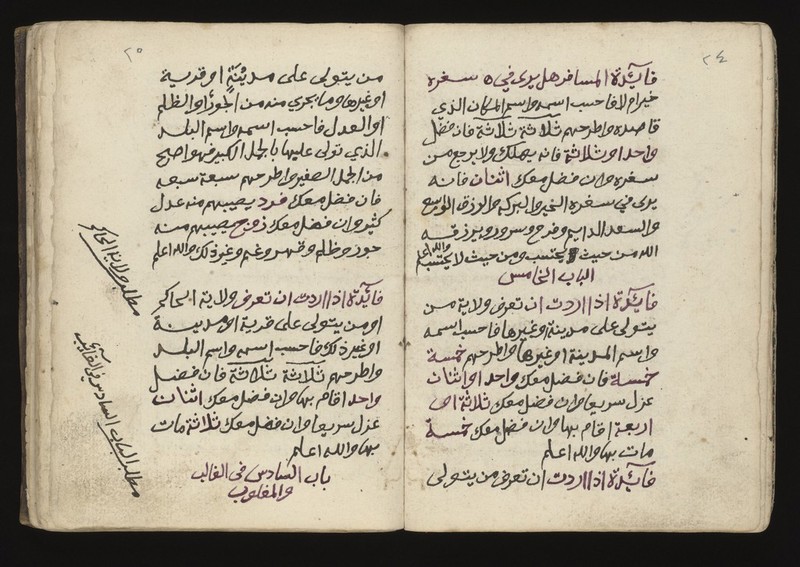 ٢٤
فايدة المسافر هل يرى في سفره
خيرا م لا فاحسب اسمه واسم المكان الذي
قاصده واطرحهم ثلاثة ثلاثة فان فضل
واحدا وثلاثة فانه يهلك ولا يرجع من
سفره وان فضل معك اثنان فانه
يرى في سفره الخير والبركه والرزق الواسع
والسعد الدايم وفرح وسرور ويرزقه
الله من حيث يحتسب ومن حيث لا يحتسب والله اعلم
الباب الخامس
فايدة اذا اردت ان تعرف ولاية من
يتولى على مدينة وغيرها فاحسب اسمه
واسم المدينة اوغيرها واطرحهم خمسة
خمسة فان فضل معك واحد او اثنان
عزل سريعا وان فضل معك ثلاثة او
اربعة اقام بها وان فضل معك خمسة
مات بها والله اعلم
فايدة اذا اردت ان تعرف من يتولى
٢٥
من يتولى على مدينة او قرية
اوغيرها وما يجري منه من الجور والظلم
او العدل فاحسب اسمه واسم البلد
الذي تولى عليها بالجمل الكبير فهو اصح
من الجمل الصغير واطرحهم سبعة سبعه
فان فضل معك فرد يصيبهم منه عدل
كثير وان فضل معك زوج يصيبهم منه
جور وظلم وقهر وغم وغير ذلك والله اعلم
فايدة اذا اردت ان تعرف ولاية الحاكم
او من يتولى على قرية او مدينة
اوغير ذلك فاحسب اسمه واسم البلد
واطرحهم ثلاثة ثلاثة فان فضل
واحد اقام بها وان فضل معك اثنان
عزل سريعا وان فضل معك ثلاثة مات
بها والله اعلم
باب السادس في الغالب
والمغلوب
مطلب ولاية الحاكم
مطلب الباب السادس في الغالب